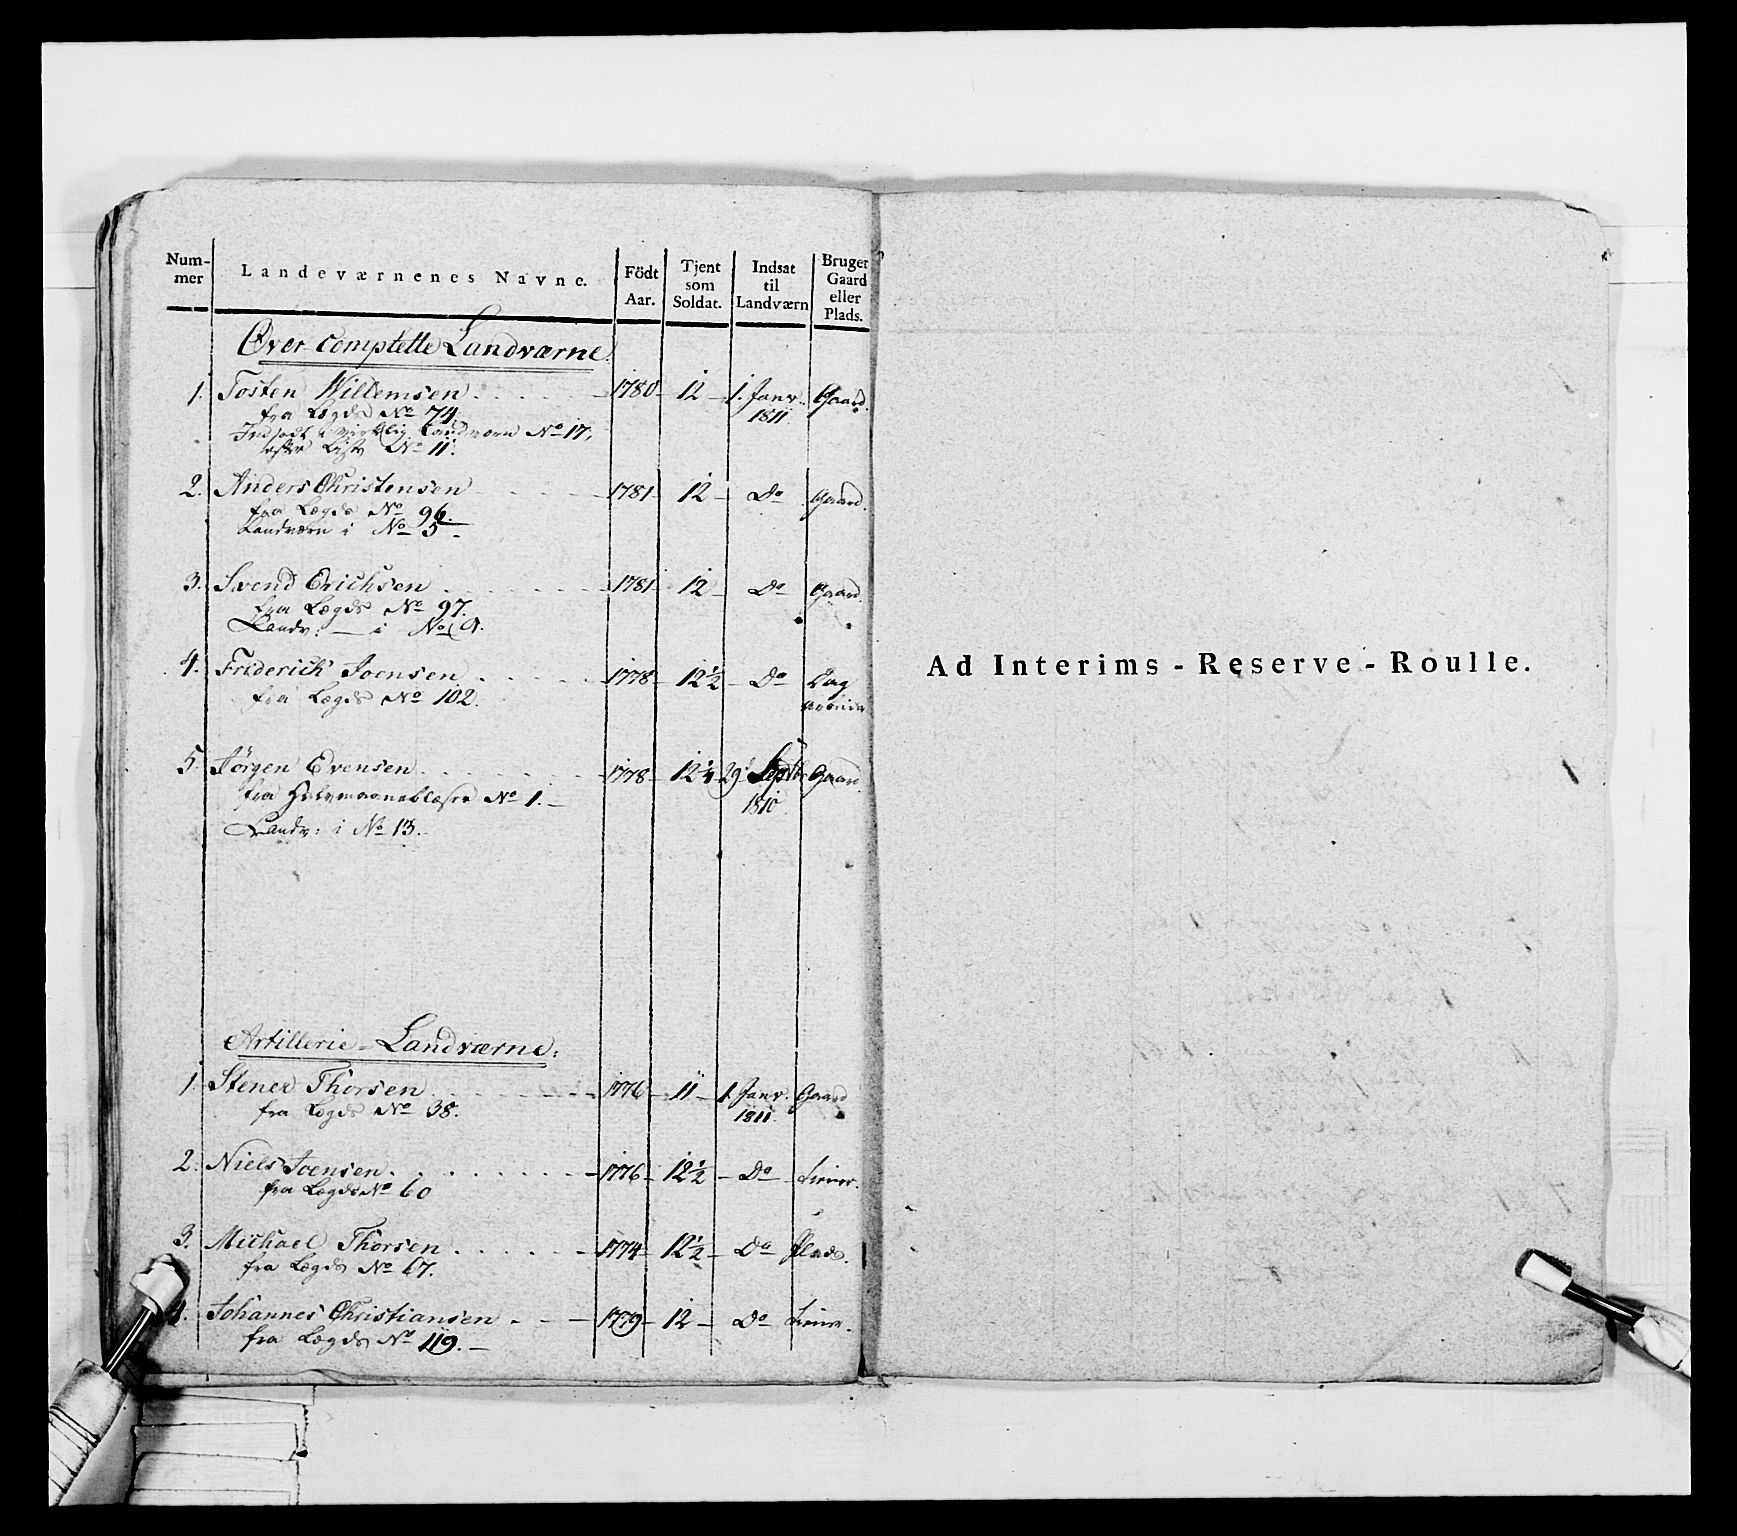 Num-mer | Landeværnenes Navne. | Födt Aar. | Tjent som Soldat. | Indsat til Landværn | Bruger Gaard eller Plads.
Over Complette Landværne.
1. Tosten Willemsen . . . . — 1780 — 12 — 1. Janv. 1811. Gaard.
fra Lægds No 74.
Indsadt i virklig Landværn No 17,
efter Liste No 11.
2. Anders Christensen . . . . — 1781 — 12 — Do Gaard.
fra Lægds No 96.
Landværn i No 5 —
3. Svend Erichsen . . . . — 1781 — 12 — Do Gaard.
fra Lægds No 97.
Landv: — i No
4. Friderich Joensen . . . . — 1778 — 12½ — Do Dag arbeider
fra Lægds No 102.
5. Jørgen Evensen . . . . — 1778 — 12¼ 29. Septbr 1810. Gaard.
fra Halvmaaneblæser No 1. —
Landv: i No 13. —
Artillerie-Landværne.
1. Stener Thorsen . . . . — 1776 — 11 — 1. Janv. 1811. Gaard
fra Lægds No 38.
2. Niels Joensen . . . . — 1776 — 12½ — Do
fra Lægds No 60
3. Michael Thorsen . . . . — 1774 — 12½ — Do Plads.
fra Lægds No 67.
4. Johannes Christiansen . — — 1779 — 12 — Do
fra Lægds No 119. —
Ad Interims-Reserve-Roulle.